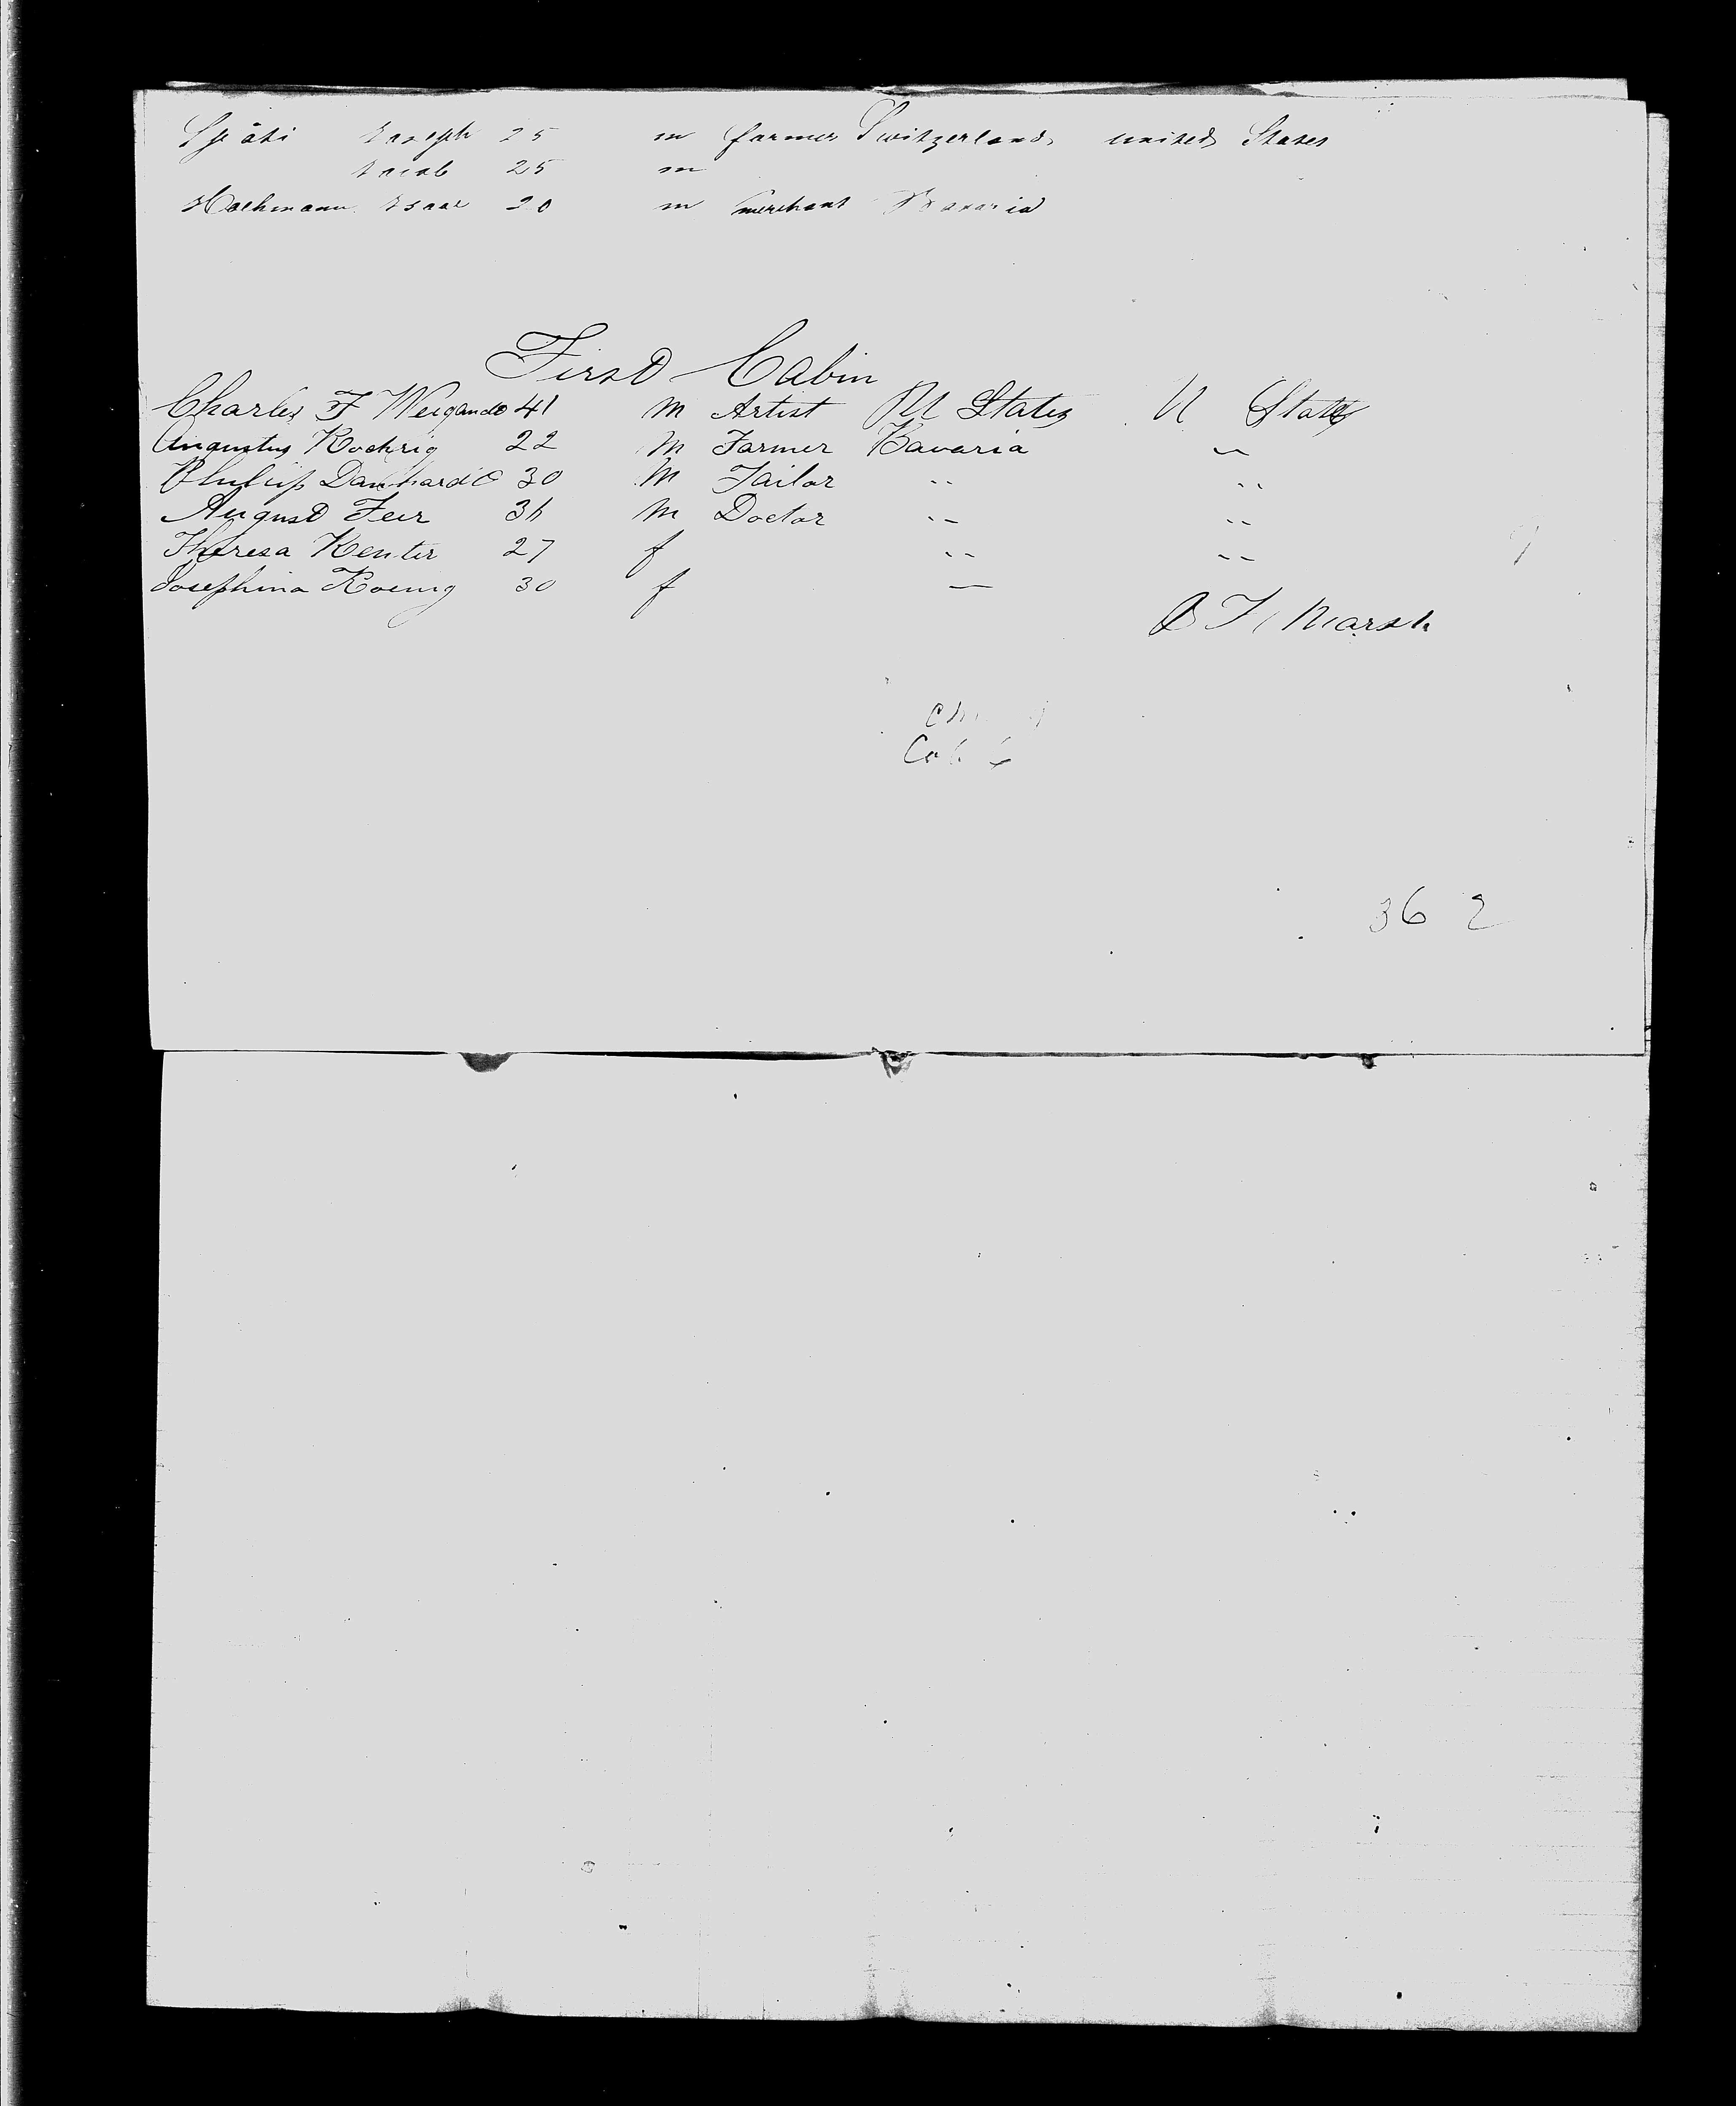 Späti Joseph 25 m farmer Switzerland united States
Jacob 25 m
Hochmann Isaac 20 m merchant Bavaria
First Cabin
Charles F Weigand 41 M Artist U States U States
Augustus Roehrig 22 M Farmer Bavaria "
Philip Danhardt 30 M Tailor " "
August Feer 36 M Doctor " "
Theresa Kenter 27 f " "
Josephina Koenig 30 f —
B F Marsh
Cab 6
36 2